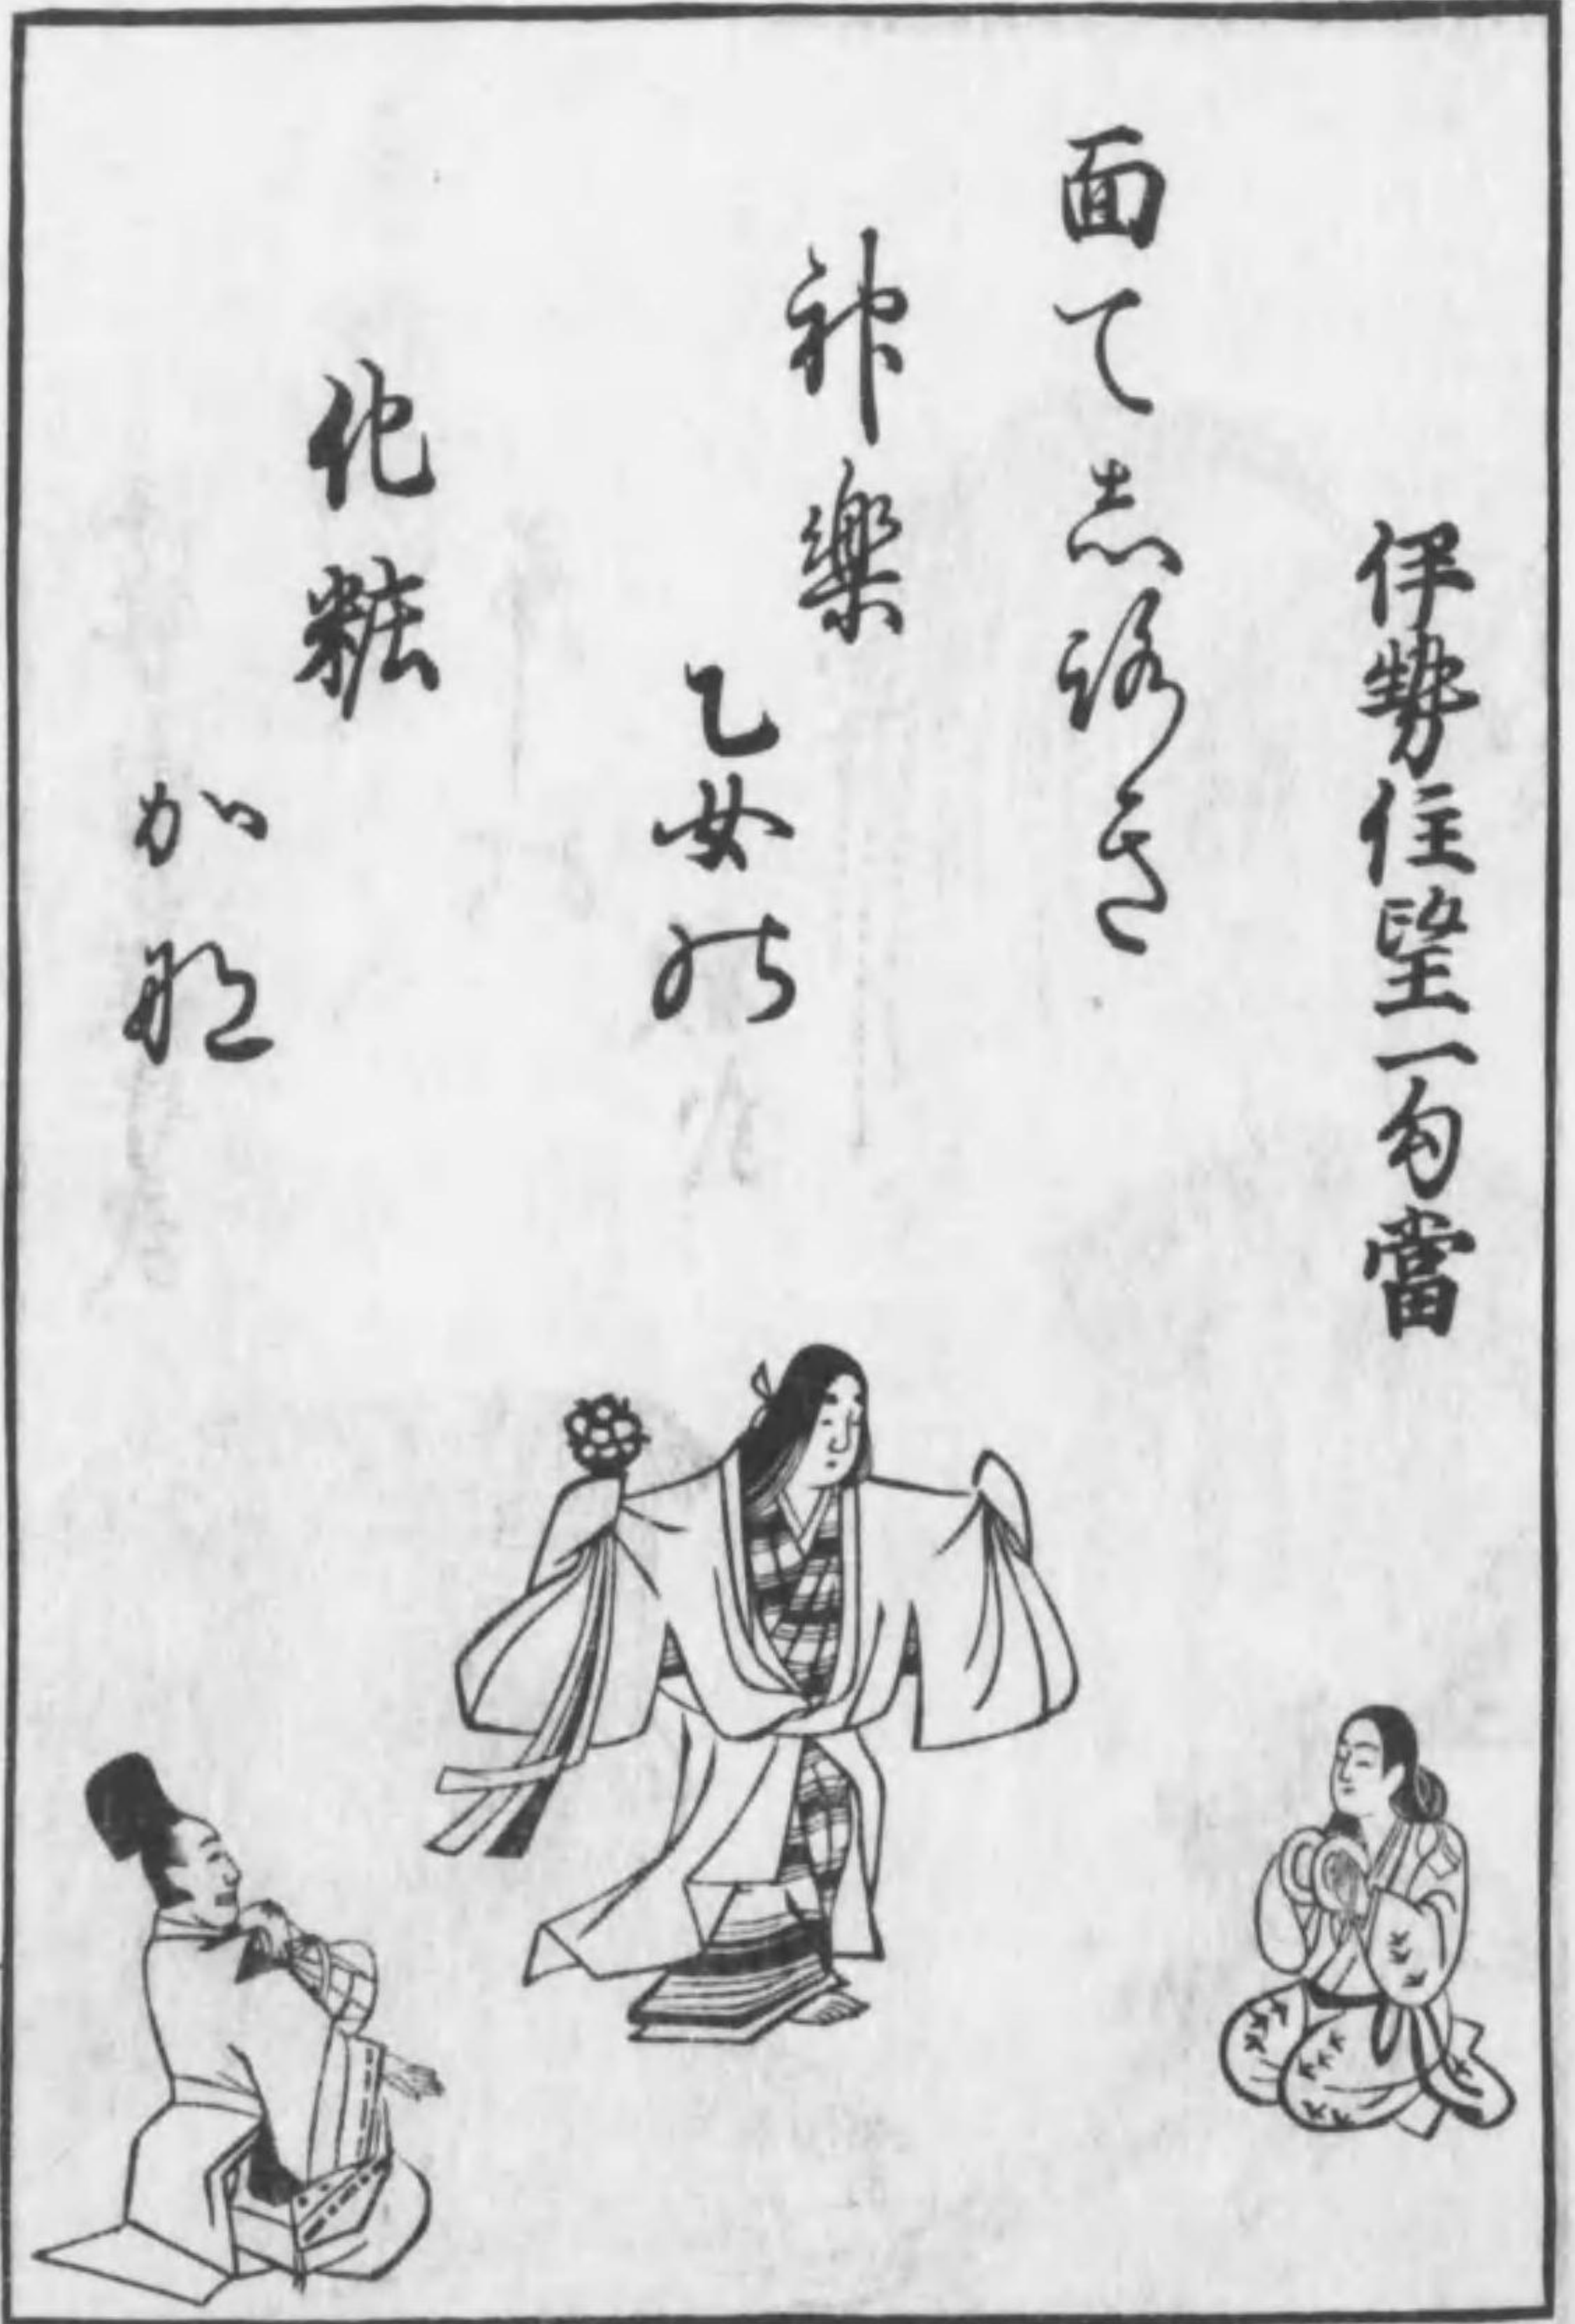 伊勢住望一勾當
面て志路き
神樂
乙女の
化粧
加那